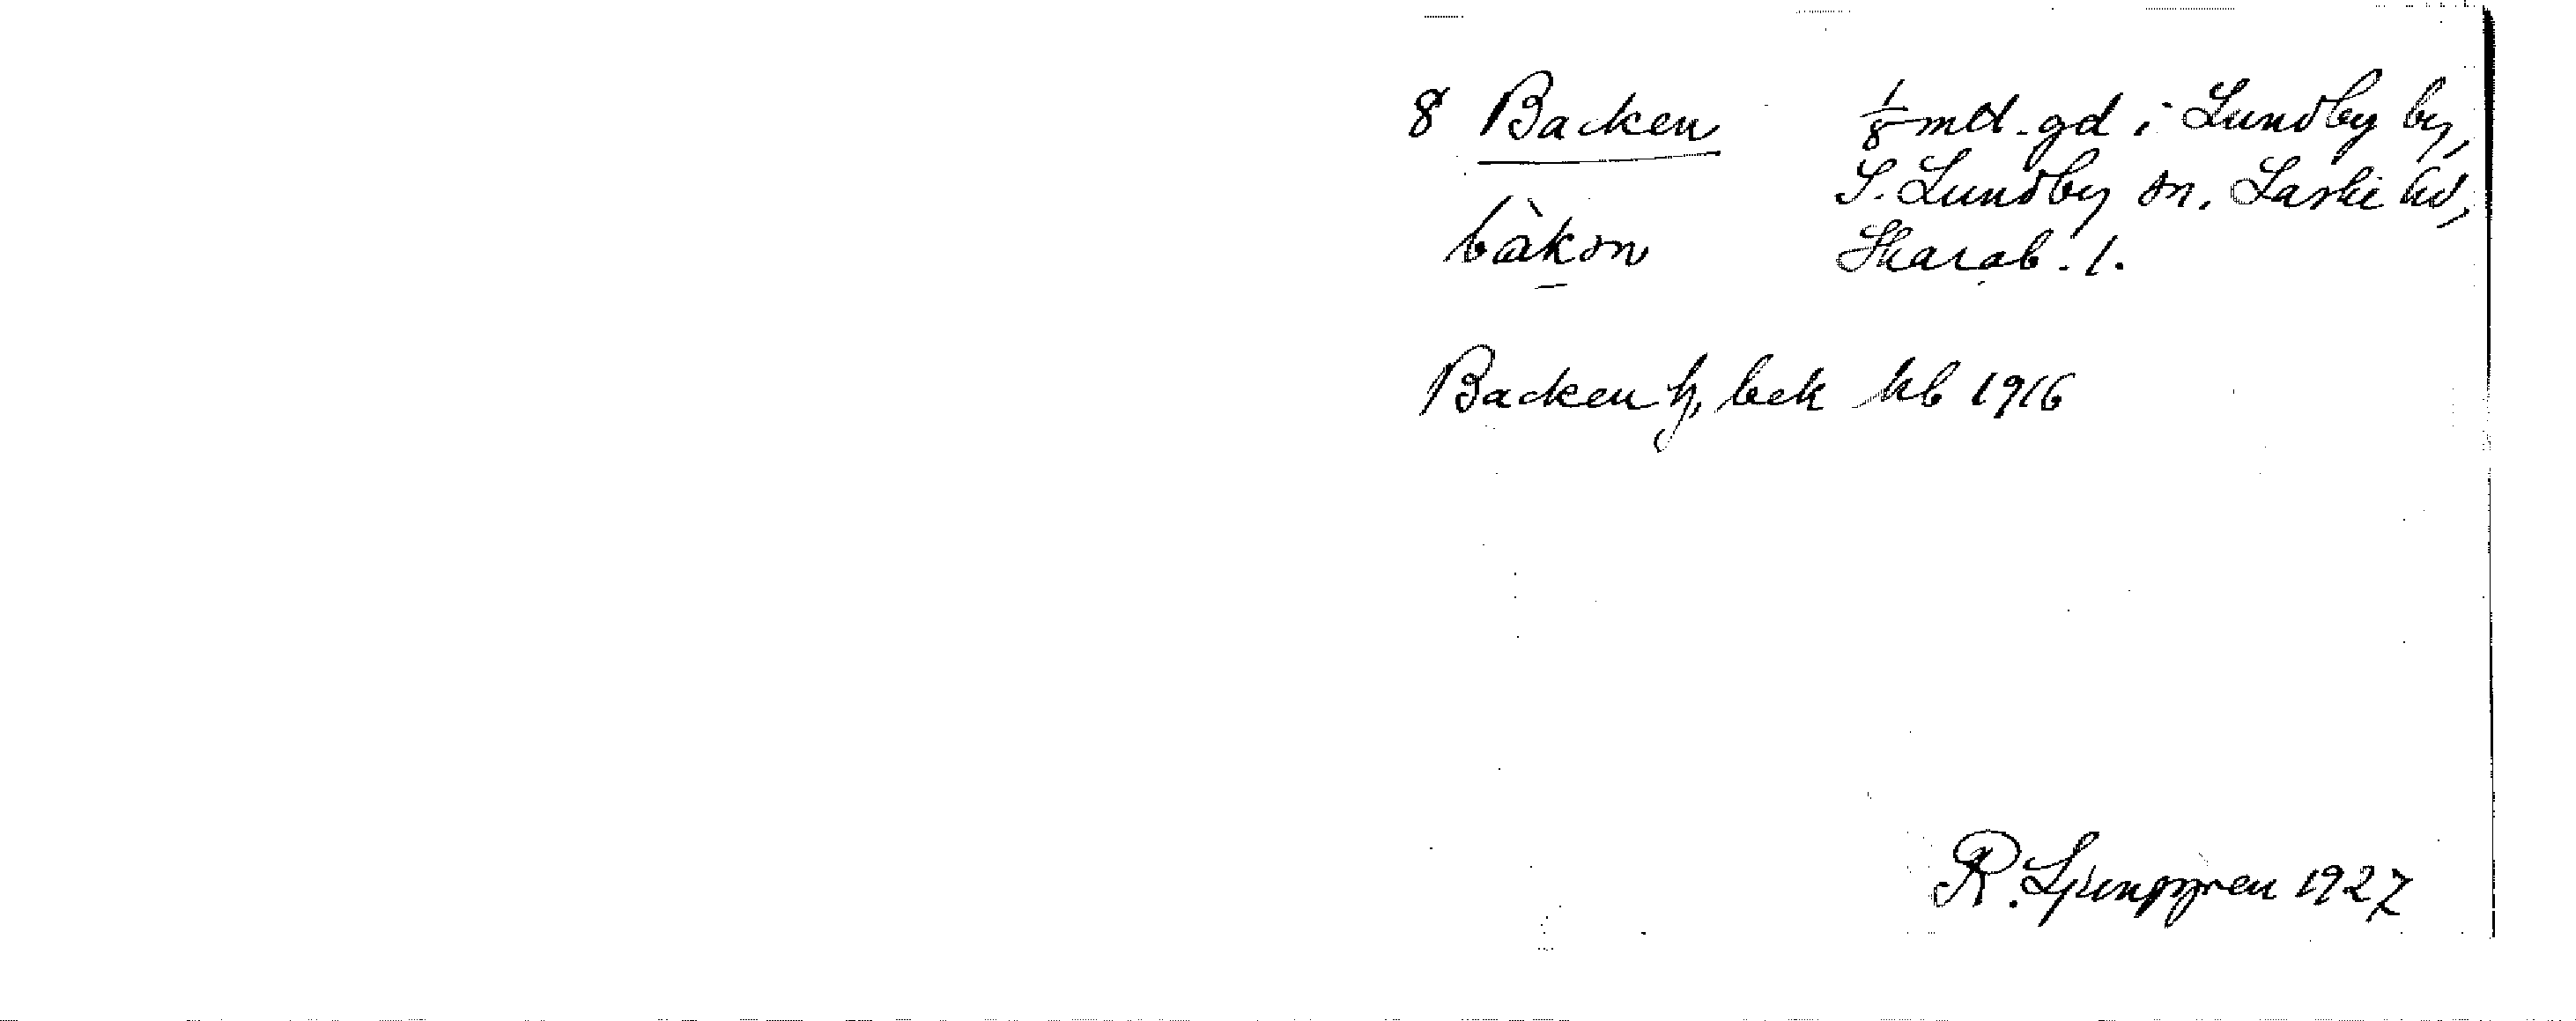 8 Backen 1/8 mtl. gd i Lundby by,
S. Lundby sn, Laske hd,
bàkən Skarab. l.
Backen hj, bek kb 1916
R. Ljunggren 1927